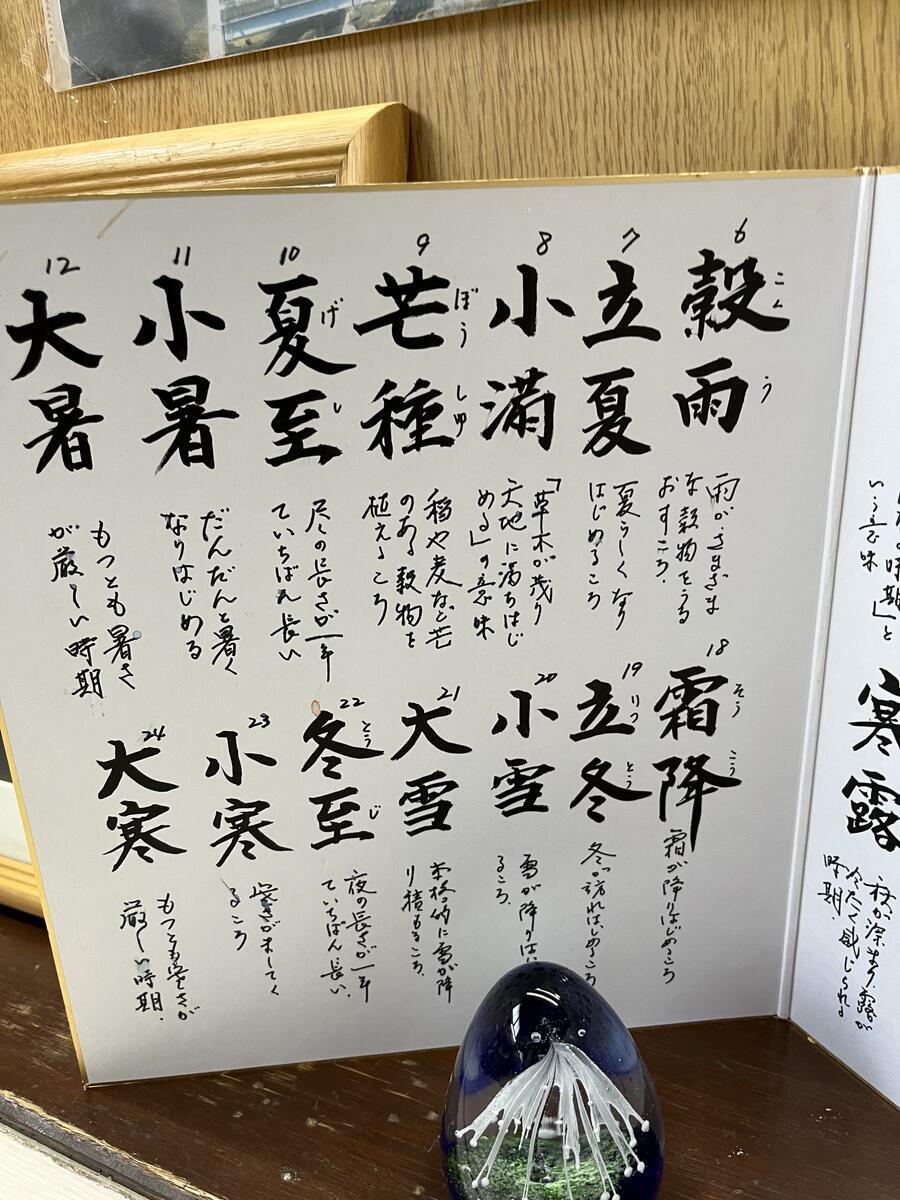 6
穀雨
こく
う
雨がさまざま
な穀物をうる
おすころ、
7
立夏
夏らしくなり
はじめるころ
8
小満
「草木が茂り
天地に満ちはじ
める」の意味
9
芒種
ぼう
しゅ
稲や麦など芒
のある穀物を
植えるころ
10
夏至
げ
し
昼の長さが一年
でいちばん長い
11
小暑
だんだんと暑く
なりはじめる
12
大暑
もっとも暑さ
が厳しい時期
18
霜降
そう
こう
霜が降りはじめころ
19
立冬
りっ
とう
冬が訪れはじめころ
20
小雪
雪が降りは
るころ、
21
大雪
本格的に雪が降
り積もるころ、
22
冬至
とう
じ
夜の長さが一年
でいちばん長い、
23
小寒
寒さがましてく
るころ
24
大寒
もっとも寒さが
厳しい時期、
の時期」と
いう意味
寒露
秋が深まり露が
冷たく感じられる
時期